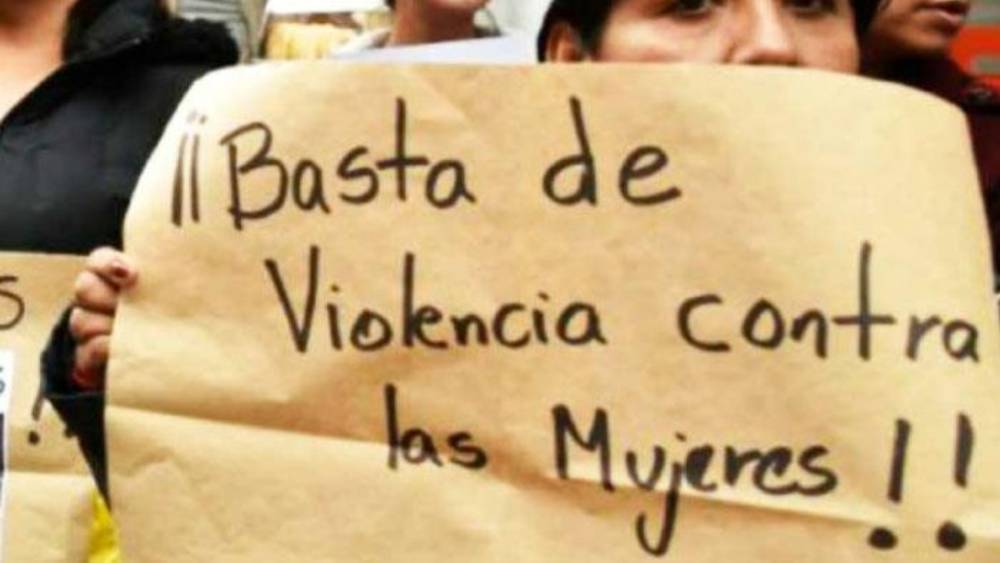 ¡¡Basta de
Violencia contra
las Mujeres!!